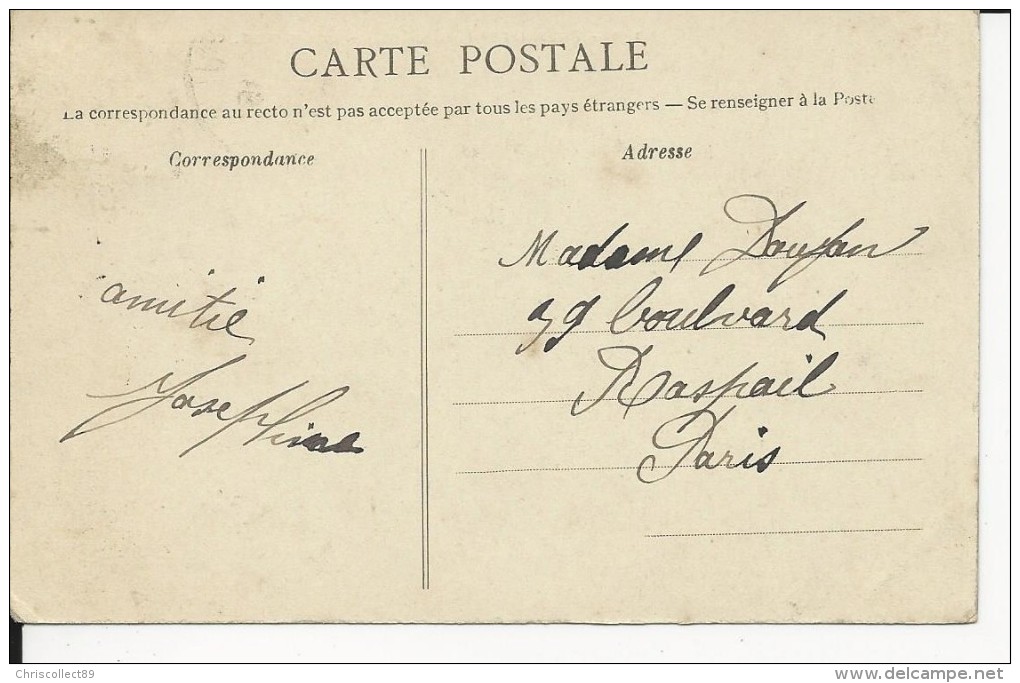 CARTE POSTALE
La correspondance au recto n'est pas acceptée par tous les pays étrangers — Se renseigner à la Poste
Correspondance
Adresse
amitié
Josephine
Madame
39 boulvard
Raspail
Paris
Chriscollect89
www.delcampe.net